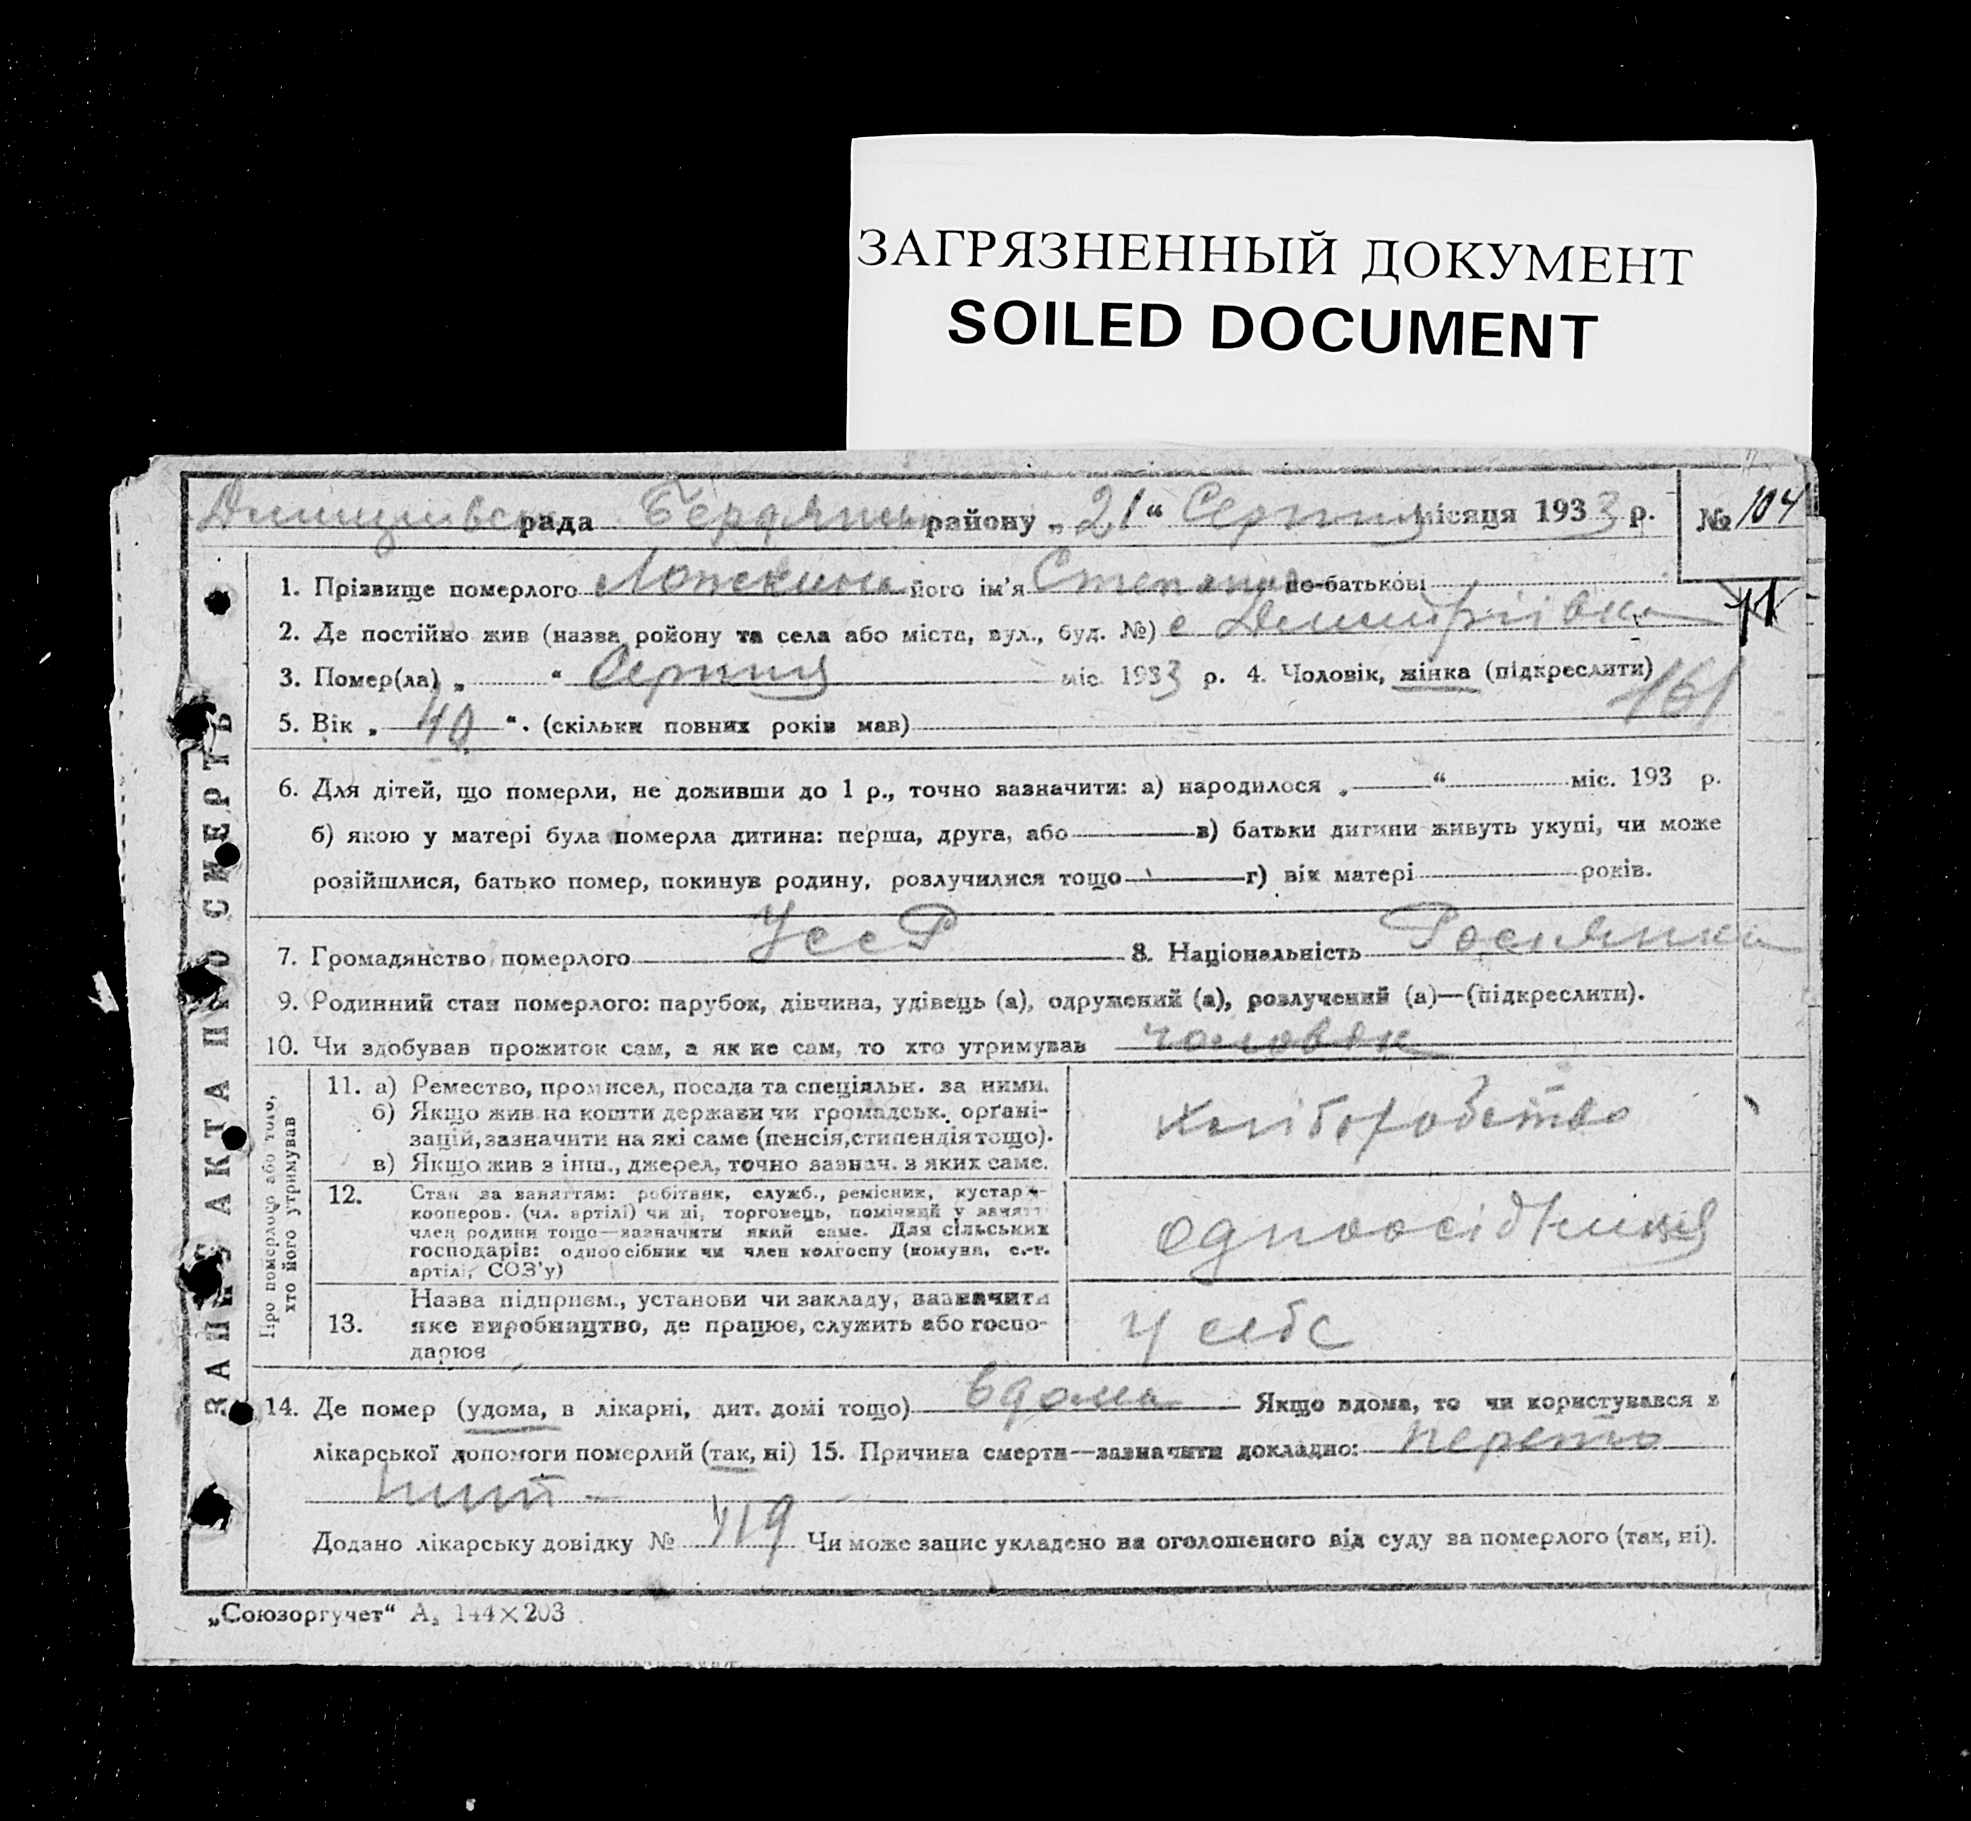 ЗАГРЯЗНЕННЫЙ ДОКУМЕНТ
SOILED DOCUMENT
рада района районy „21“ Серпня місяця 1933 р. № 104
1. Прізвище померлого його ім'я по-батькові
2. Де постійно жив (назва ройону та села або міста, вул., буд. №) с Дмитріівка
11
3. Помер(ла) „ “ Серпня міс. 1933 р. 4. Чоловік, жінка (підкреслити)
161
5. Вік „ 40 “. (скільки повних років мав)
6. Для дітей, що померли, не доживши до 1 р., точно зазначити: а) народилося „ “ міс. 193 р.
б) якою у матері була померла дитина: перша, друга, або в) батьки дитини живуть укупі, чи може
розійшлися, батько помер, покинув родину, розлучилися тощо г) вік матері років.
7. Громадянство померлого УССР 8. Національність Росиянка
9. Родинний стан померлого: парубок, дівчина, удівець (а), одружений (а), розлучений (а)—(підкреслити).
10. Чи здобував прожиток сам, а як не сам, то хто утримував чоловік
ЗАПИС АКТА ПРО СМЕРТЬ
Про померлого або того,
хто його утримував
11. а) Ремество, промисел, посада та спеціяльн. за ними.
б) Якщо жив на кошти держави чи громадськ. органі-
зацій, зазначити на які саме (пенсія, стипендія тощо).
в) Якщо жив з інш., джерел, точно зазнач. з яких саме.
хліборобство
12. Стан за заняттям: робітник, служб., ремісник, кустар -
кооперов. (чл. артілі) чи ні, торговець, помічний у занятт
член родини тощо—зазначити який саме. Для сільських
господарів: одноосібник чи член колгоспу (комуна, с.-г.
артілі, СОЗ'у)
одноосідниця
13. Назва підприєм., установи чи закладу, зазначити
яке виробництво, де працює, служить або госпо-
дарює
у себе
14. Де помер (удома, в лікарні, дит. домі тощо) вдома Якщо вдома, то чи користувався з
лікарської допомоги померлий (так, ні) 15. Причина смерти—зазначити докладно: перето
ніит
Додано лікарську довідку № 119 Чи може запис укладено на оголошеного від суду за померлого (так, ні).
„Союзоргучет“ А₅ 144×203